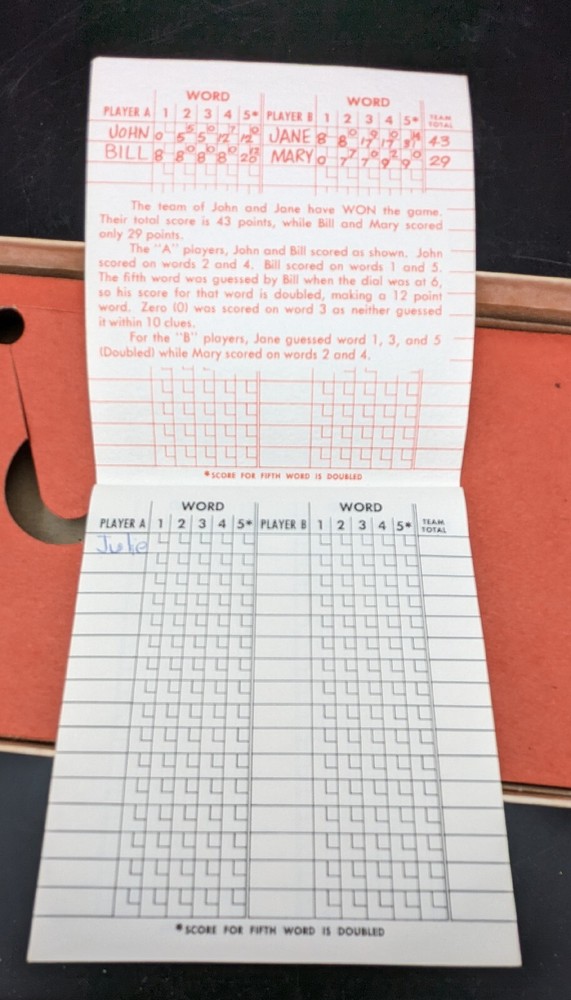 WORD WORD
PLAYER A 1 2 3 4 5* PLAYER B 1 2 3 4 5* TEAM TOTAL
JOHN 0 5 5 12 12 JANE 8 8 17 17 43
BILL 8 8 8 8 20 MARY 0 7 7 9 9 29
The team of John and Jane have WON the game.
Their total score is 43 points, while Bill and Mary scored
only 29 points.
The "A" players, John and Bill scored as shown. John
scored on words 2 and 4. Bill scored on words 1 and 5.
The fifth word was guessed by Bill when the dial was at 6,
so his score for that word is doubled, making a 12 point
word. Zero (0) was scored on word 3 as neither guessed
it within 10 clues.
For the "B" players, Jane guessed word 1, 3, and 5
(Doubled) while Mary scored on words 2 and 4.
*SCORE FOR FIFTH WORD IS DOUBLED
WORD WORD
PLAYER A 1 2 3 4 5* PLAYER B 1 2 3 4 5* TEAM TOTAL
Julie
*SCORE FOR FIFTH WORD IS DOUBLED